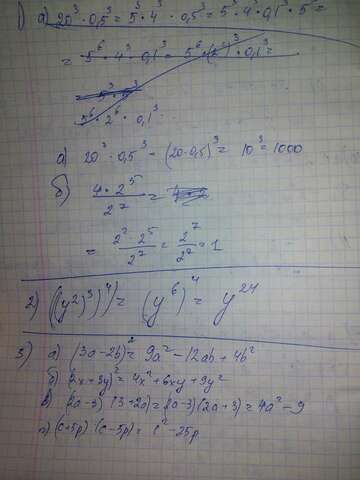 1) а) 20³ · 0,5³ = 5³ · 4³ · 0,5³ = 5³ · 4³ · 0,1³ · 5³ =
= 5⁶ · 4³ · 0,1³ = 5⁶ · (2²)³ · 0,1³ =
5⁶ · 2⁶ · 0,1³
а) 20³ · 0,5³ = (20 · 0,5)³ = 10³ = 1000
б) 4 · 2⁵ / 2⁷ =
= 2² · 2⁵ / 2⁷ = 2⁷ / 2⁷ = 1
2) ((y²)³)⁴) = (y⁶)⁴ = y²⁴
3) а) (3a - 2b)² = 9a² - 12ab + 4b²
б) (2x + 3y)² = 4x² + 6xy + 9y²
в) (2a - 3) (3 + 2a) = (2a - 3) (2a + 3) = 4a² - 9
г) (c + 5p) (c - 5p) = c² - 25p